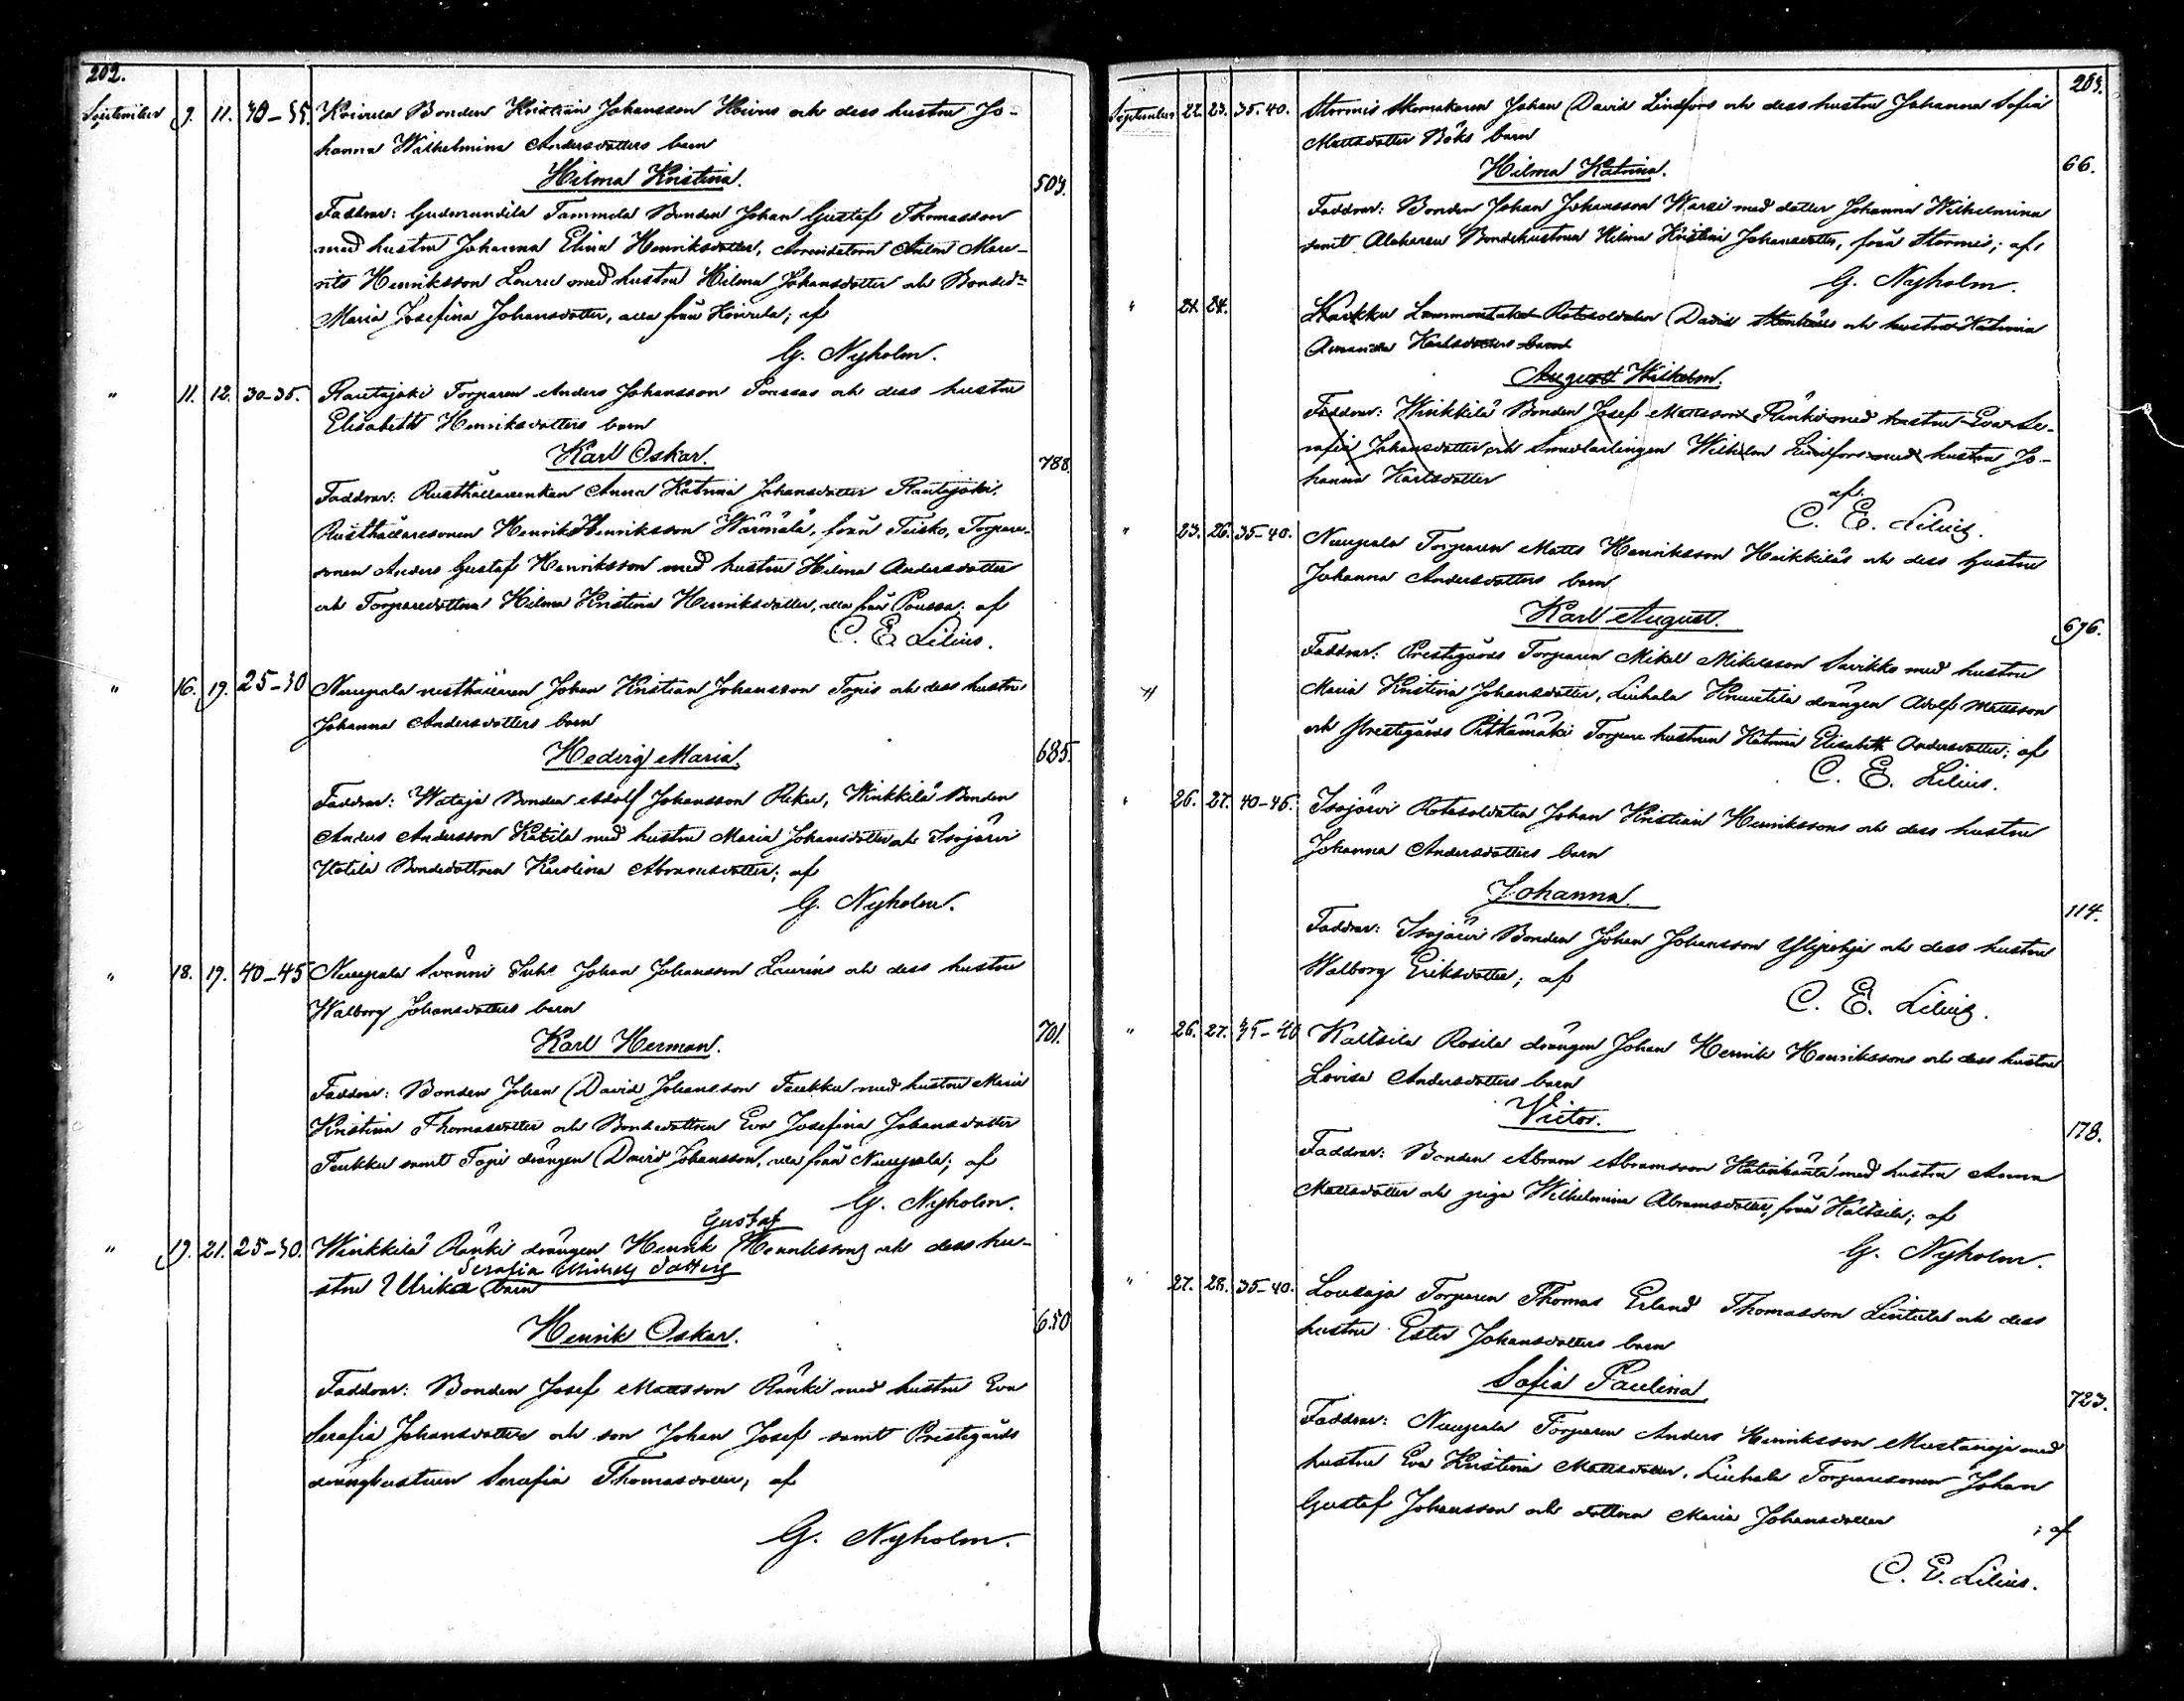 202.
September 9. 11. 30-35. Koivula Bonden Kristian Johansson Hoivus och dess hustru Jo-
hanna Wilhelmina Andersdotters barn
Hilma Kristina.
Faddrar: Gudmundila Tammela Bonden Johan Gustaf Thomasson
med hustru Johanna Elina Henriksdotter, Arrendatorn Anton Mau-
rits Henriksson Lauru med hustru Hilma Johansdotter och Bonded:n
Maria Josefina Johansdotter, alla från Koivula; af
G. Nyholm.
" 11. 12. 30-35. Rautajoki Torparen Anders Johansson Poussas och dess hustru
Elisabeth Henriksdotters barn
Karl Oskar. 788.
Faddrar: Rusthållareenkan Anna Katrina Johansdotter Rautajoki,
Rusthållaresonen Henrik Henriksson Wärmälä, från Teisko, Torpare-
sonen Anders Gustaf Henriksson med hustru Hilma Andersdotter
och Torparedottren Hilma Kristina Henriksdotter, alla från Poussa; af
C. E. Lilius.
" 16. 19. 25-30 Nuupala rusthållaren Johan Kristian Johansson Topis och dess hustru
Johanna Andersdotters barn
Hedvig Maria. 685.
Faddrar: Wataja Bonden Adolf Johansson Reku, Winkkilä Bonden
Anders Andersson Katila med hustru Maria Johansdotter och Isojärvi
Utotila Bondedottren Karolina Abramsdotter; af
G. Nyholm.
" 18. 19. 40-45 Nuupala Svänni Inhs Johan Johansson Laurins och dess hustru
Walborg Johansdotters barn
Karl Herman. 701.
Faddrar: Bonden Johan David Johansson Feukku med hustru Maria
Kristina Thomasdotter och Bondedottren Eva Josefina Johansdotter
Feukku samt Topi drängen David Johansson, alla från Nuupala; af
G. Nyholm.
Gustaf
" 19. 21. 25-30. Winkkilä Ränki drängen Henrik Henrikssons och dess hu-
Serafia Michels dotters
stru Ulrika barn
Henrik Oskar. 650
Faddrar: Bonden Josef Mattsson Ränki med hustru Eva
Serafia Johansdotter och son Johan Josef samt Prestegårds
dränghustrun Serafia Thomasdotter, af
G. Nyholm.
203.
September 22. 23. 35-40. Stormis Skomakaren Johan David Lindfors och dess hustru Johanna Sofia
Mattsdotter Böks barn
Hilma Katrina. 66.
Faddrar: Bonden Johan Johansson Warri med dotter Johanna Wilhelmina
samt Alaharen Bondehustrun Hilma Kristina Johansdotter, från Stormis; af
G. Nyholm.
" 21. 24. Karkku Rotesoldaten David och hustru Katrina
Amanda Karlsdotters barn
August Wilhelm.
Faddrar: Winkkilä Bonden Josef Mattsson Ränki med hustru Eva Se-
rafia Johansdotter och Wilhelm Lindfors med hustru Jo-
hanna Karlsdotter
af
C. E. Lilius.
" 23. 26. 35-40. Nuupala Torparen Matts Henriksson Heikkiläs och dess hustru
Johanna Andersdotters barn
Karl August. 696.
Faddrar: Prestegårds Torparen Mikel Mikelsson Savikko med hustru
Maria Kristina Johansdotter, Liuhala Knuutila drängen Adolf Mattsson
och Prestegårds Pitkämäki Torpare hustrun Katrina Elisabeth Andersdotter; af
C. E. Lilius.
" 26. 27. 40-45. Isojärvi Rotesoldaten Johan Kristian Henrikssons och dess hustru
Johanna Andersdotters barn
Johanna. 114.
Faddrar: Isojärvi Bonden Johan Johansson Ylipohja och dess hustru
Walborg Eriksdotter; af
C. E. Lilius.
" 26. 27. 35-40 Kaltsila Rosila drängen Johan Henrik Henrikssons och dess hustru
Lovisa Andersdotters barn
Victor. 178.
Faddrar: Bonden Abram Abramsson Hatinkanta med hustru Anna
Mattsdotter och piga Wilhelmina Abramsdotter, från Kaltsila; af
G. Nyholm.
" 27. 28. 35-40. Lousaja Torparen Thomas Erland Thomasson Lintula och dess
hustru Ester Johansdotters barn
Sofia Paulina 723.
Faddrar: Nuupala Torparen Anders Henriksson Mustanoja med
hustru Eva Kristina Mattsdotter, Liuhala Torparesonen Johan
Gustaf Johansson och dottren Maria Johansdotter ; af
C. E. Lilius.